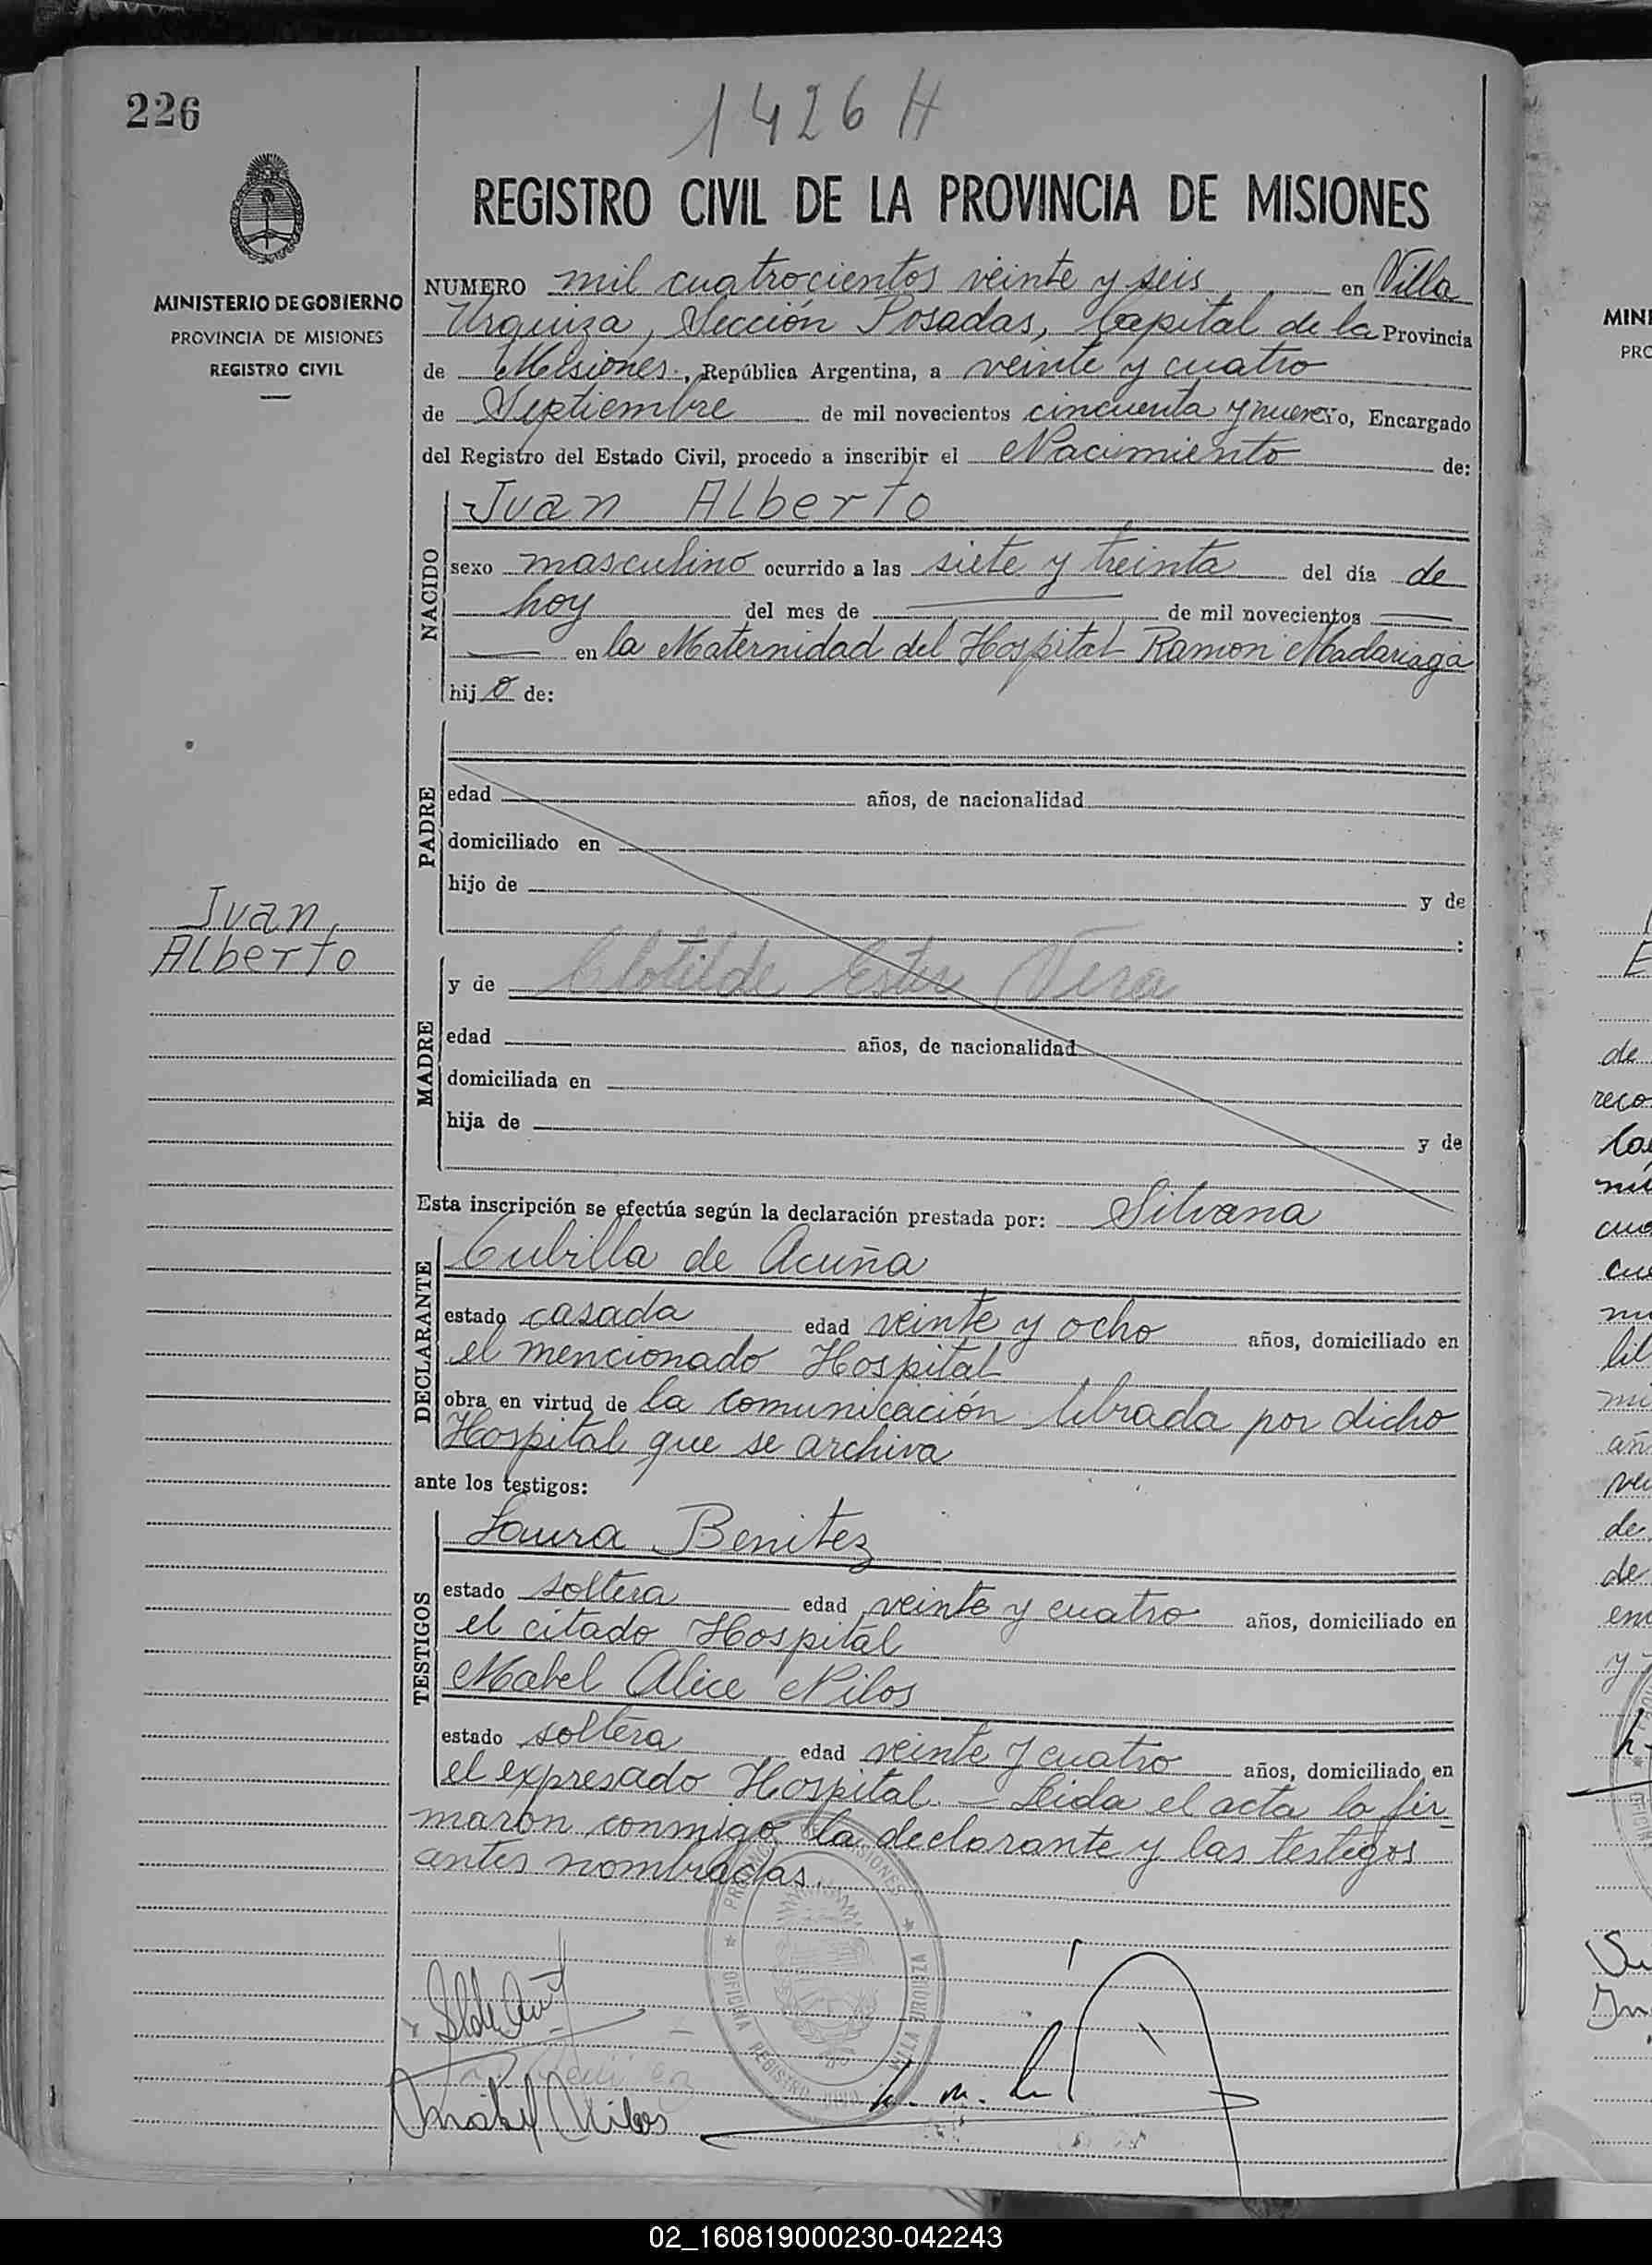 226
1426 H
REGISTRO CIVIL DE LA PROVINCIA DE MISIONES
MINISTERIO DE GOBIERNO
PROVINCIA DE MISIONES
REGISTRO CIVIL
NUMERO mil cuatrocientos veinte y seis en Villa
Urquiza, Sección Posadas, Capital de la Provincia
de Misiones, República Argentina, a veinte y cuatro
de Septiembre de mil novecientos cincuenta y nueve, Encargado
del Registro del Estado Civil, procedo a inscribir el Nacimiento de:
NACIDO
Juan Alberto
sexo masculino ocurrido a las siete y treinta del día de
hoy del mes de de mil novecientos
en la Maternidad del Hospital Ramon Madariaga
hijo de:
PADRE
edad años, de nacionalidad
domiciliado en
hijo de y de
:
Juan
Alberto
MADRE
y de Clotilde Ester Vera
edad años, de nacionalidad
domiciliada en
hija de y de
Esta inscripción se efectúa según la declaración prestada por: Silvana
DECLARANTE
Cubilla de Acuña
estado casada edad veinte y ocho años, domiciliado en
el mencionado Hospital
obra en virtud de la comunicación librada por dicho
Hospital que se archiva
ante los testigos:
TESTIGOS
Laura Benitez
estado soltera edad veinte y cuatro años, domiciliado en
el citado Hospital
Mabel Alice Nilos
estado soltera edad veinte y cuatro años, domiciliado en
el expresado Hospital. — Leida el acta la fir
maron conmigo la declarante y las testigos
antes nombradas.
PROVINCIA MISIONES
OFICINA REGISTRO CIVIL VILLA URQUIZA
Mabel Nilos
MINI
PRO
E
de
reco
cue
de
de
en
y
02_160819000230-042243